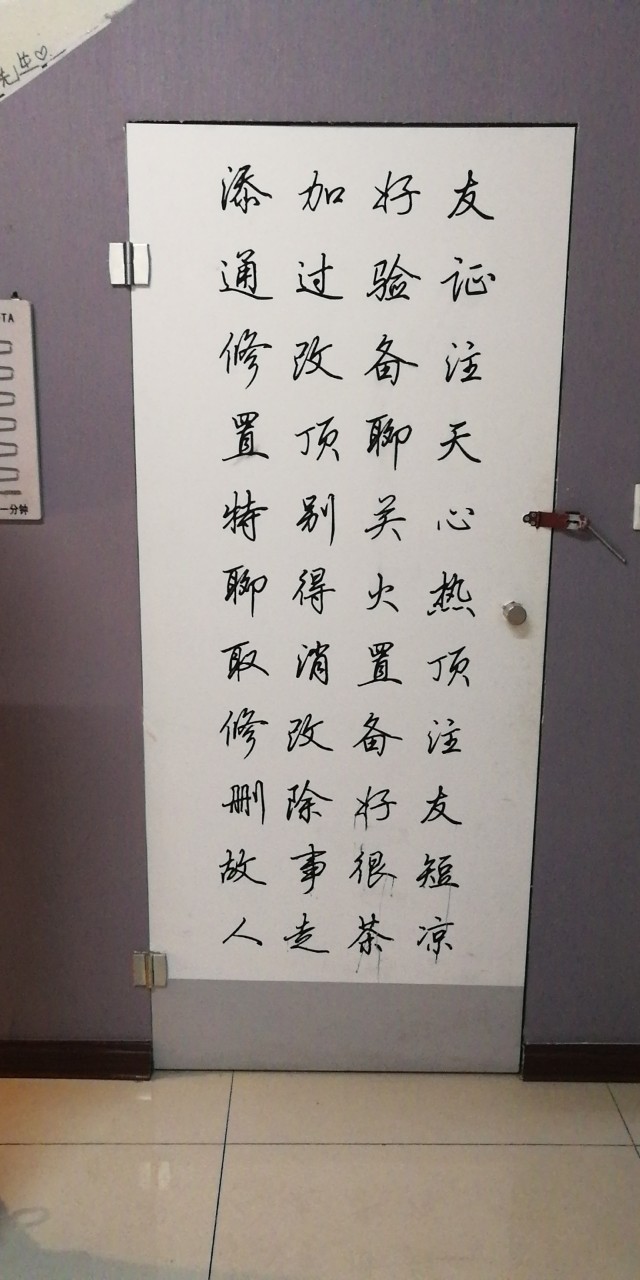 先生♡
TA
一分钟
添加好友
通过验证
修改备注
置顶聊天
特别关心
聊得火热
取消置顶
修改备注
删除好友
故事很短
人走茶凉